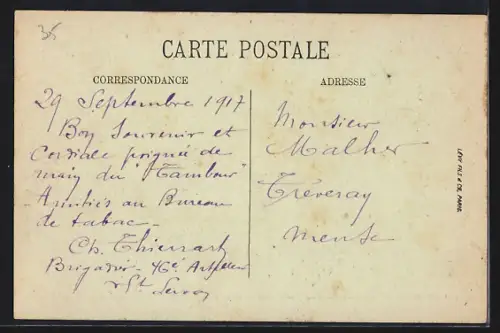 35
CARTE POSTALE
CORRESPONDANCE
ADRESSE
29 Septembre 1917
Bon Souvenir et
Cordiale poignée de
main du "Tambour"
Amitiés au Bureau
de tabac -
Ch. Thiessart
Brigadier - 46e
Monsieur
Malher
Tréveray
Meuse
LÉVY FILS & CIE, PARIS.